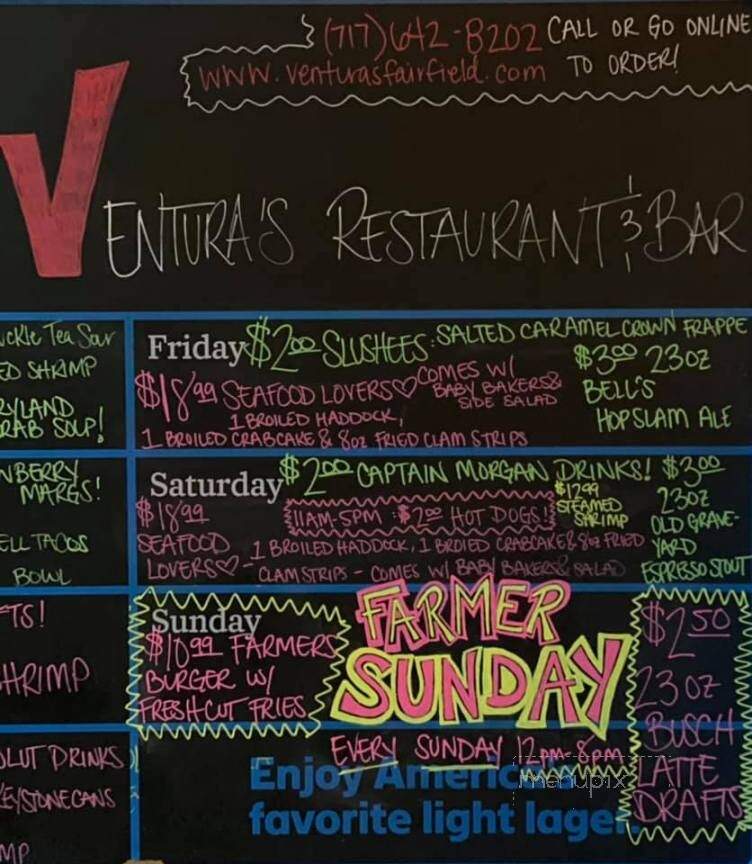 (717)642-8202 CALL OR GO ONLINE
www.venturasfairfield.com TO ORDER!
VENTURA'S RESTAURANT & BAR
Tea Sour
SHRIMP
CRAB SOUP!
MARGS!
TACOS
BOWL
SHRIMP
DRINKS
KEYSTONE CANS
Friday $2.00 SLUSHEES: SALTED CARAMEL CROWN FRAPPE
$18.99 SEAFOOD LOVERS♡ COMES W/
BABY BAKERS &
SIDE SALAD
1 BROILED HADDOCK,
1 BROILED CRABCAKE & 8oz FRIED CLAM STRIPS
$3.00 23oz
BELL'S
HOPSLAM ALE
Saturday $2.00 CAPTAIN MORGAN DRINKS!
$18.99
SEAFOOD
LOVERS♡ -
11AM-5PM: $2.00 HOT DOGS!
1 BROILED HADDOCK, 1 BROIED CRABCAKE & 8oz FRIED
CLAM STRIPS - COMES W/ BABY BAKERS & SALAD
$12.99
STEAMED
SHRIMP
$3.00
23oz
OLD GRAVE-
YARD
ESPRESSO STOUT
Sunday
$10.99 FARMERS
BURGER W/
FRESH CUT FRIES
FARMER
SUNDAY
EVERY SUNDAY 12pm-8pm
$2.50
23oz
BUSCH
LATTE
DRAFTS
Enjoy America's
favorite light lager.
menupix